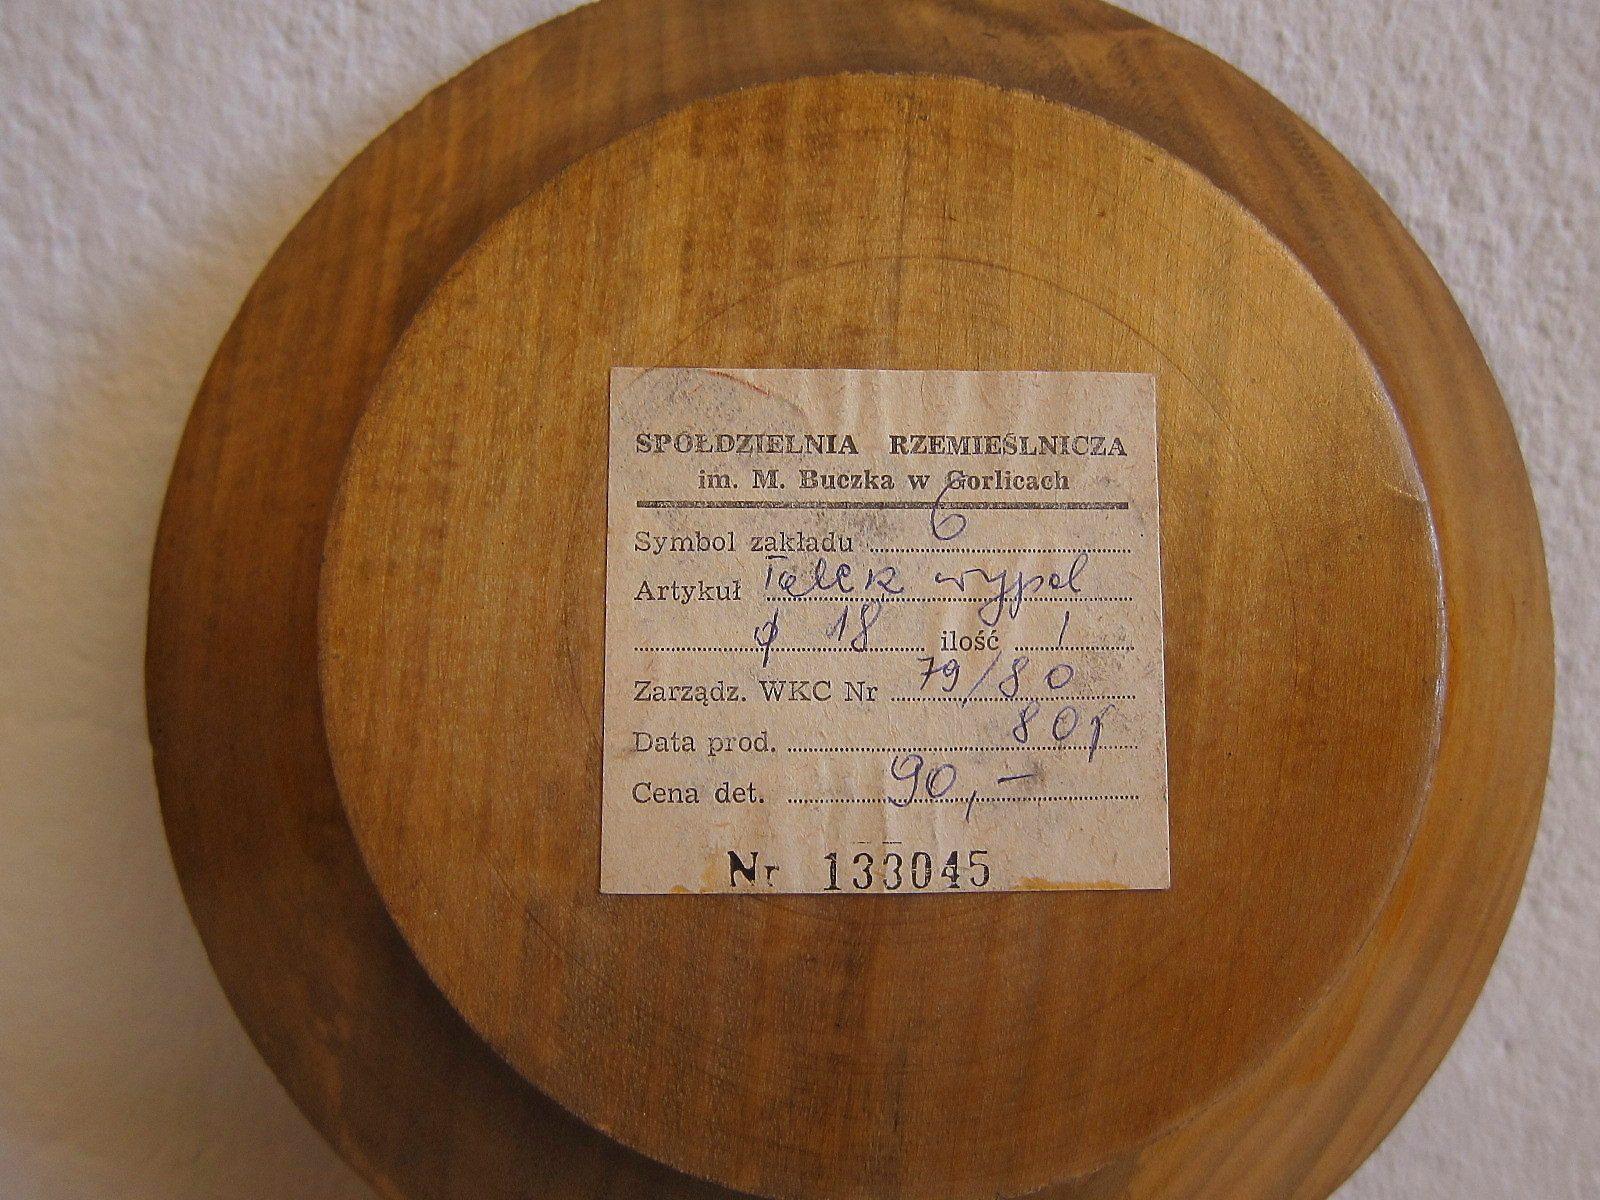 SPÓŁDZIELNIA RZEMIEŚLNICZA
im. M. Buczka w Gorlicach
Symbol zakładu 6
Artykuł Talerz wypal
ϕ 18 ilość 1
Zarządz. WKC Nr 79/80
Data prod. 80r
Cena det. 90,—
Nr 133045